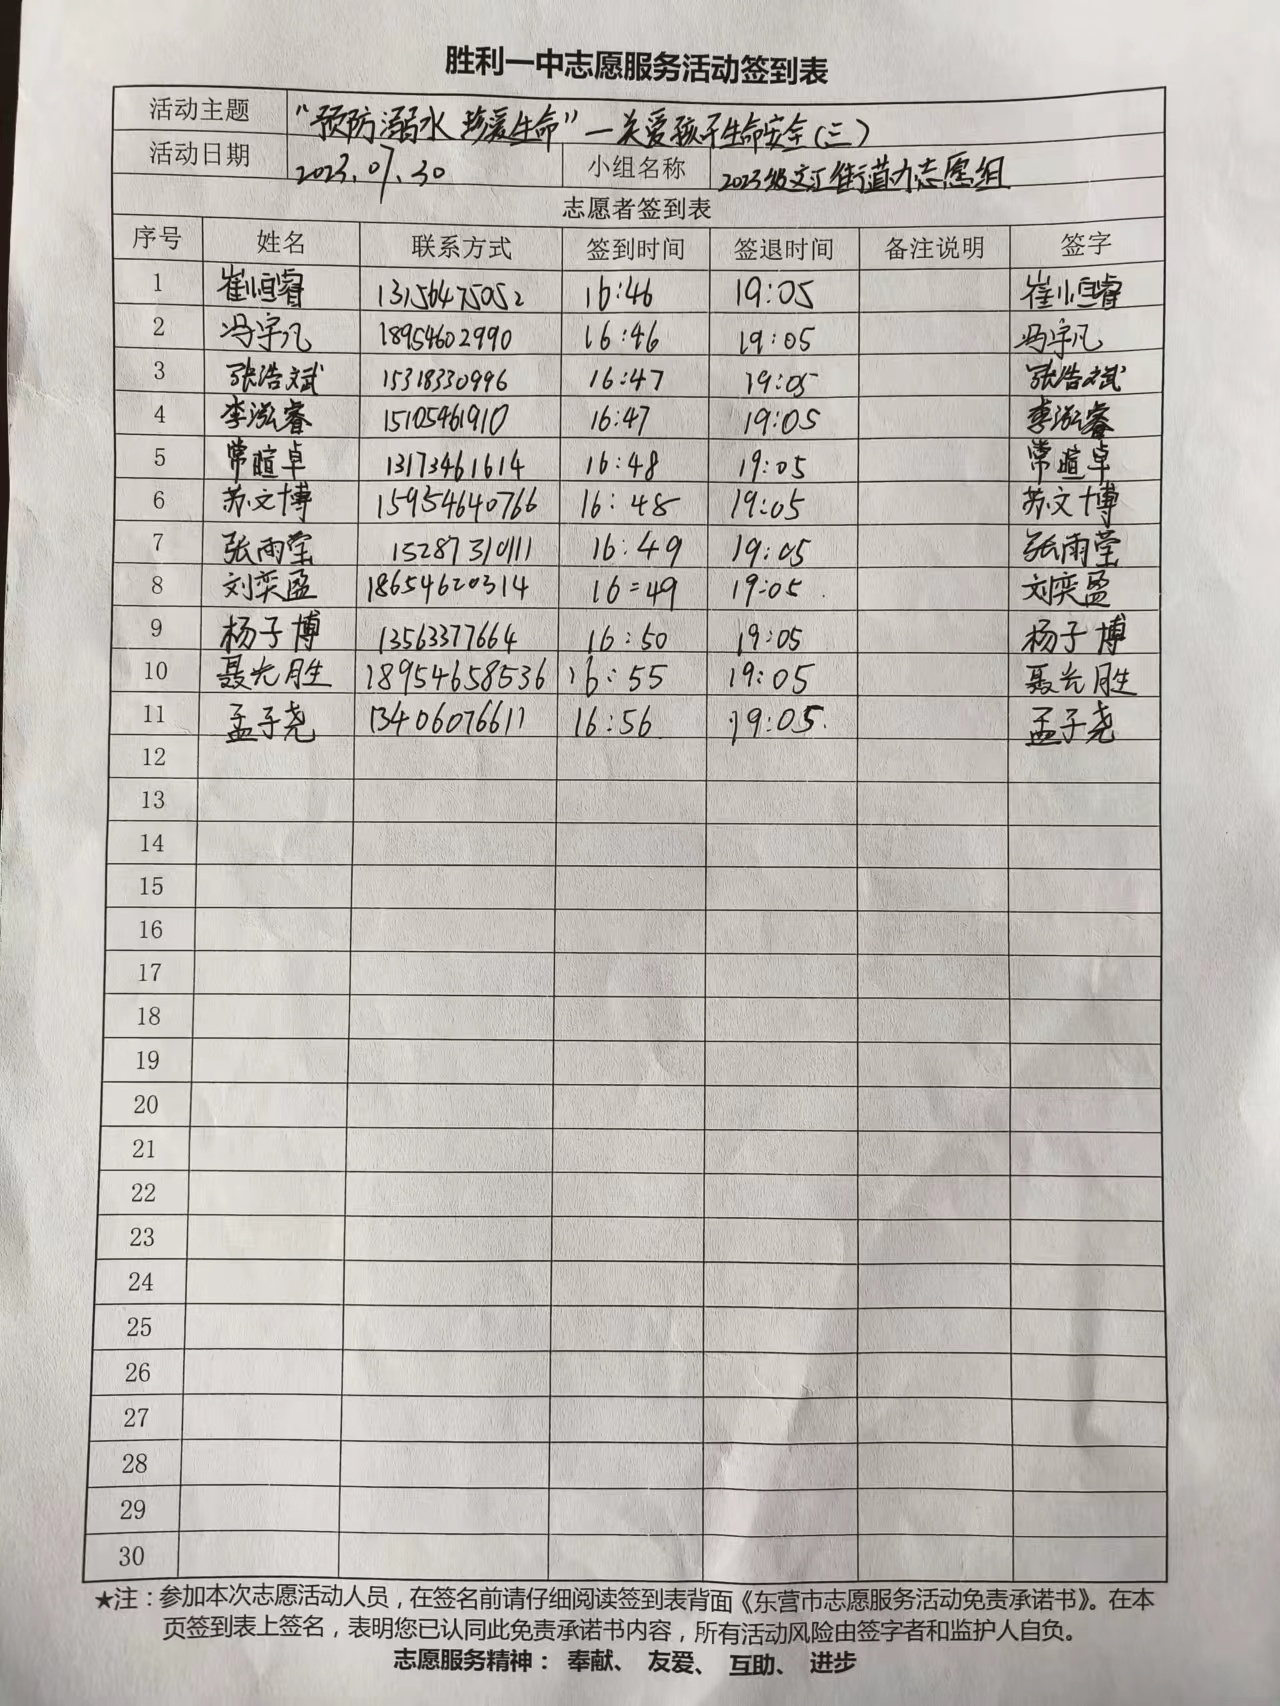 胜利一中志愿服务活动签到表
活动主题 “预防溺水 珍爱生命”—关爱孩子生命安全(三)
活动日期 2023.07.30 小组名称 2023级文汇街道办志愿组
志愿者签到表
序号 姓名 联系方式 签到时间 签退时间 备注说明 签字
1 崔恒睿 13156475052 16:46 19:05 崔恒睿
2 冯宇凡 18954602990 16:46 19:05 冯宇凡
3 张浩斌 15318330996 16:47 19:05 张浩斌
4 李泓睿 15105461910 16:47 19:05 李泓睿
5 常暄卓 13173461614 16:48 19:05 常暄卓
6 苏文博 15954640766 16:48 19:05 苏文博
7 张雨莹 15287310111 16:49 19:05 张雨莹
8 刘奕盈 18654620314 16:49 19:05 刘奕盈
9 杨子博 13563377664 16:50 19:05 杨子博
10 聂光胜 18954658536 16:55 19:05 聂光胜
11 孟子尧 13406076611 16:56 19:05 孟子尧
12
13
14
15
16
17
18
19
20
21
22
23
24
25
26
27
28
29
30
★注：参加本次志愿活动人员，在签名前请仔细阅读签到表背面《东营市志愿服务活动免责承诺书》。在本
页签到表上签名，表明您已认同此免责承诺书内容，所有活动风险由签字者和监护人自负。
志愿服务精神： 奉献、 友爱、 互助、 进步